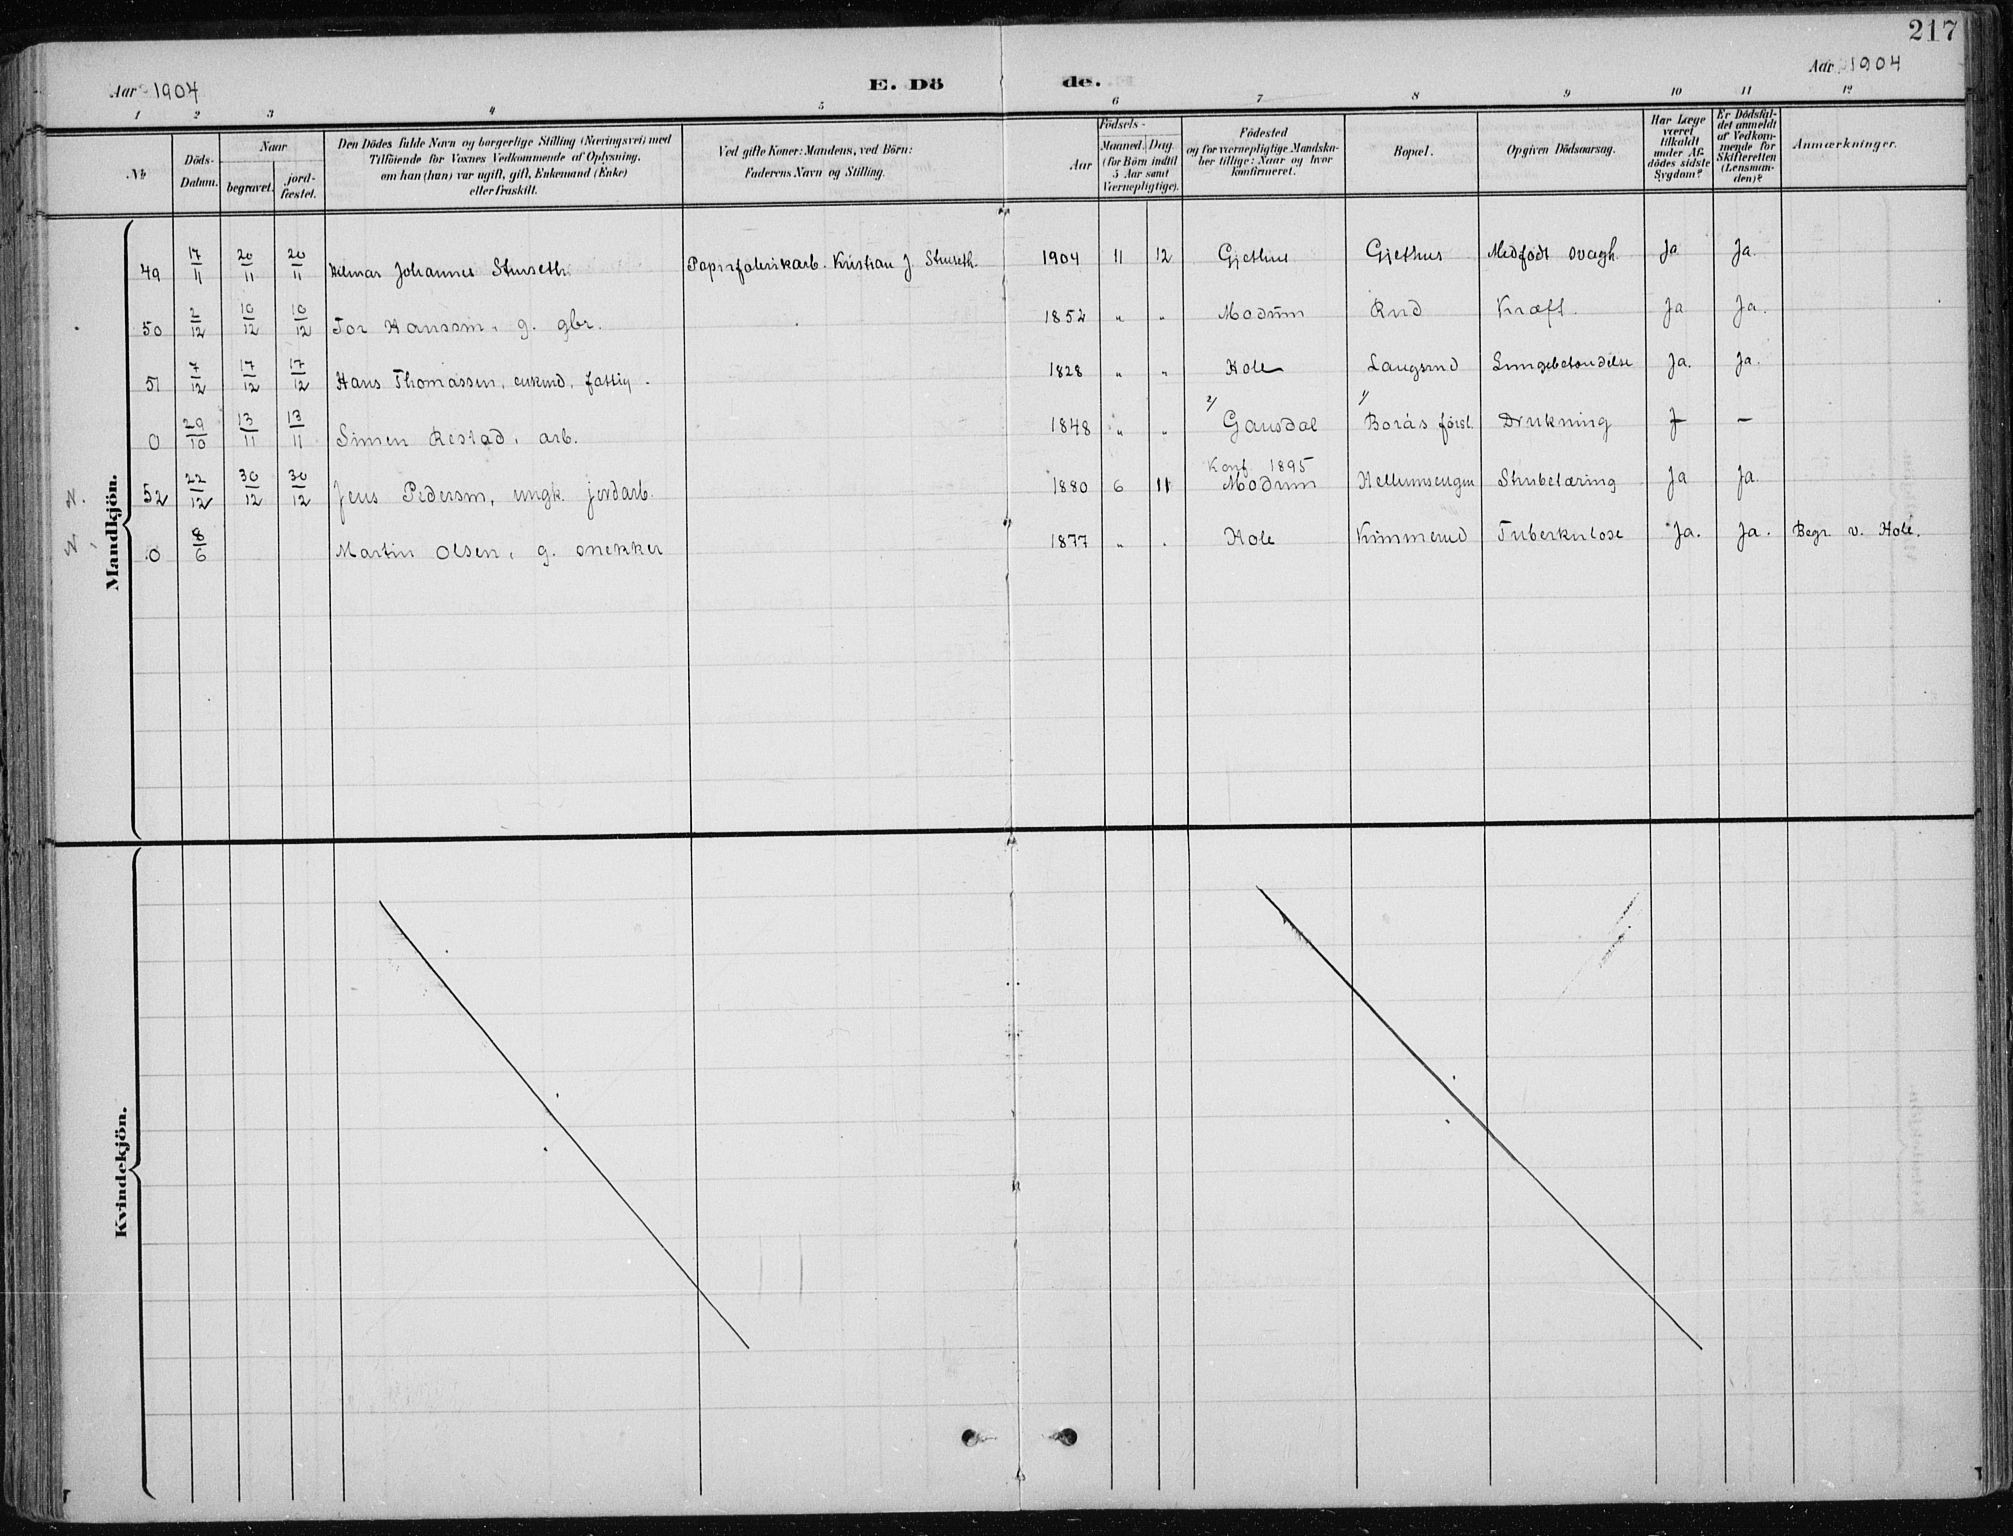 217
Aar 1904 E. Dö de. Aar 1904
1 2 3 4 5 6 7 8 9 10 11 12
№
Döds-Datum.
Naar
begravet.
jordfæstet.
Den Dödes fulde Navn og borgerlige Stilling (Næringsvei) med
Tilföiende for Voxnes Vedkommende af Oplysning,
om han (hun) var ugift, gift, Enkemand (Enke)
eller fraskilt.
Ved gifte Koner: Mandens, ved Börn:
Faderens Navn og Stilling.
Aar
Födsels-
Maaned. Dag.
(for Börn indtil
5 Aar samt
Værnepligtige).
Födested
og for værnepligtige Mandska-
ber tillige: Naar og hvor
konfirmeret.
Bopæl.
Opgiven Dödsaarsag.
Har Læge
været
tilkaldt
under Af-
dödes sidste
Sygdom?
Er Dödsfal-
det anmeldt
af Vedkom-
mende for
Skifteretten
(Lensman-
den)?
Anmærkninger.
Mandkjön.
49 17/11 20/11 20/11 Hilmar Johannes Stuseth. Papirfabrikarb. Kristian J Stuseth. 1904 11 12 Gjethus Gjethus Medfødt svagh. Ja Ja.
50 2/12 10/12 10/12 Tor Hanssøn, g. gbr. 1852 " " Modum Rud Kræft. Ja Ja.
51 7/12 17/12 17/12 Hans Thomassen, enkmd, fattig. 1828 " " Hole Langsrud Lungebetændelse Ja. Ja.
0 29/10 13/11 13/11 Simen Restad, arb. 1848 " " 2/ Gausdal 1/ Borås först. Drukning — —
52 22/12 30/12 30/12 Jens Pedersøn, ungk. jordarb. 1880 6 11 Konf. 1895 Modum Hellumsengen Strubetæring Ja Ja.
0 8/6 Martin Olsen, g. snekker 1877 " . Hole Kimmerud Tuberkulose Ja. Ja. Begr. v. Hole.
N.
N.
Kvindekjön.